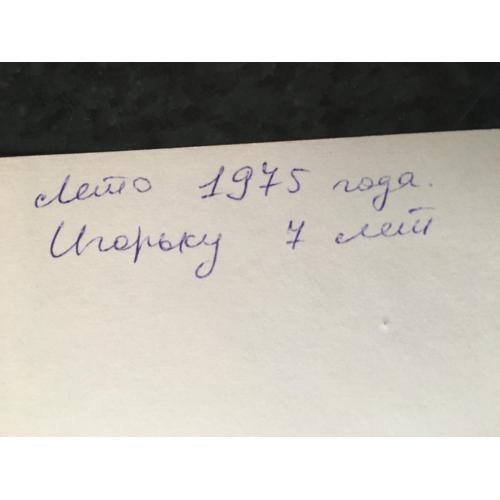 Лето 1975 года.
Игорьку 7 лет